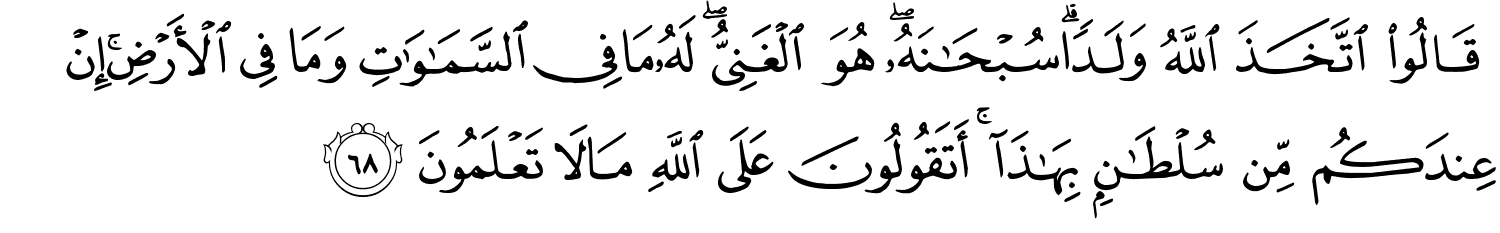 قَالُوا۟ ٱتَّخَذَ ٱللَّهُ وَلَدًۭا ۗ سُبْحَـٰنَهُۥ ۖ هُوَ ٱلْغَنِىُّ ۖ لَهُۥ مَا فِى ٱلسَّمَـٰوَٰتِ وَمَا فِى ٱلْأَرْضِ ۚ إِنْ
عِندَكُم مِّن سُلْطَـٰنٍۭ بِهَـٰذَآ ۚ أَتَقُولُونَ عَلَى ٱللَّهِ مَا لَا تَعْلَمُونَ ٦٨